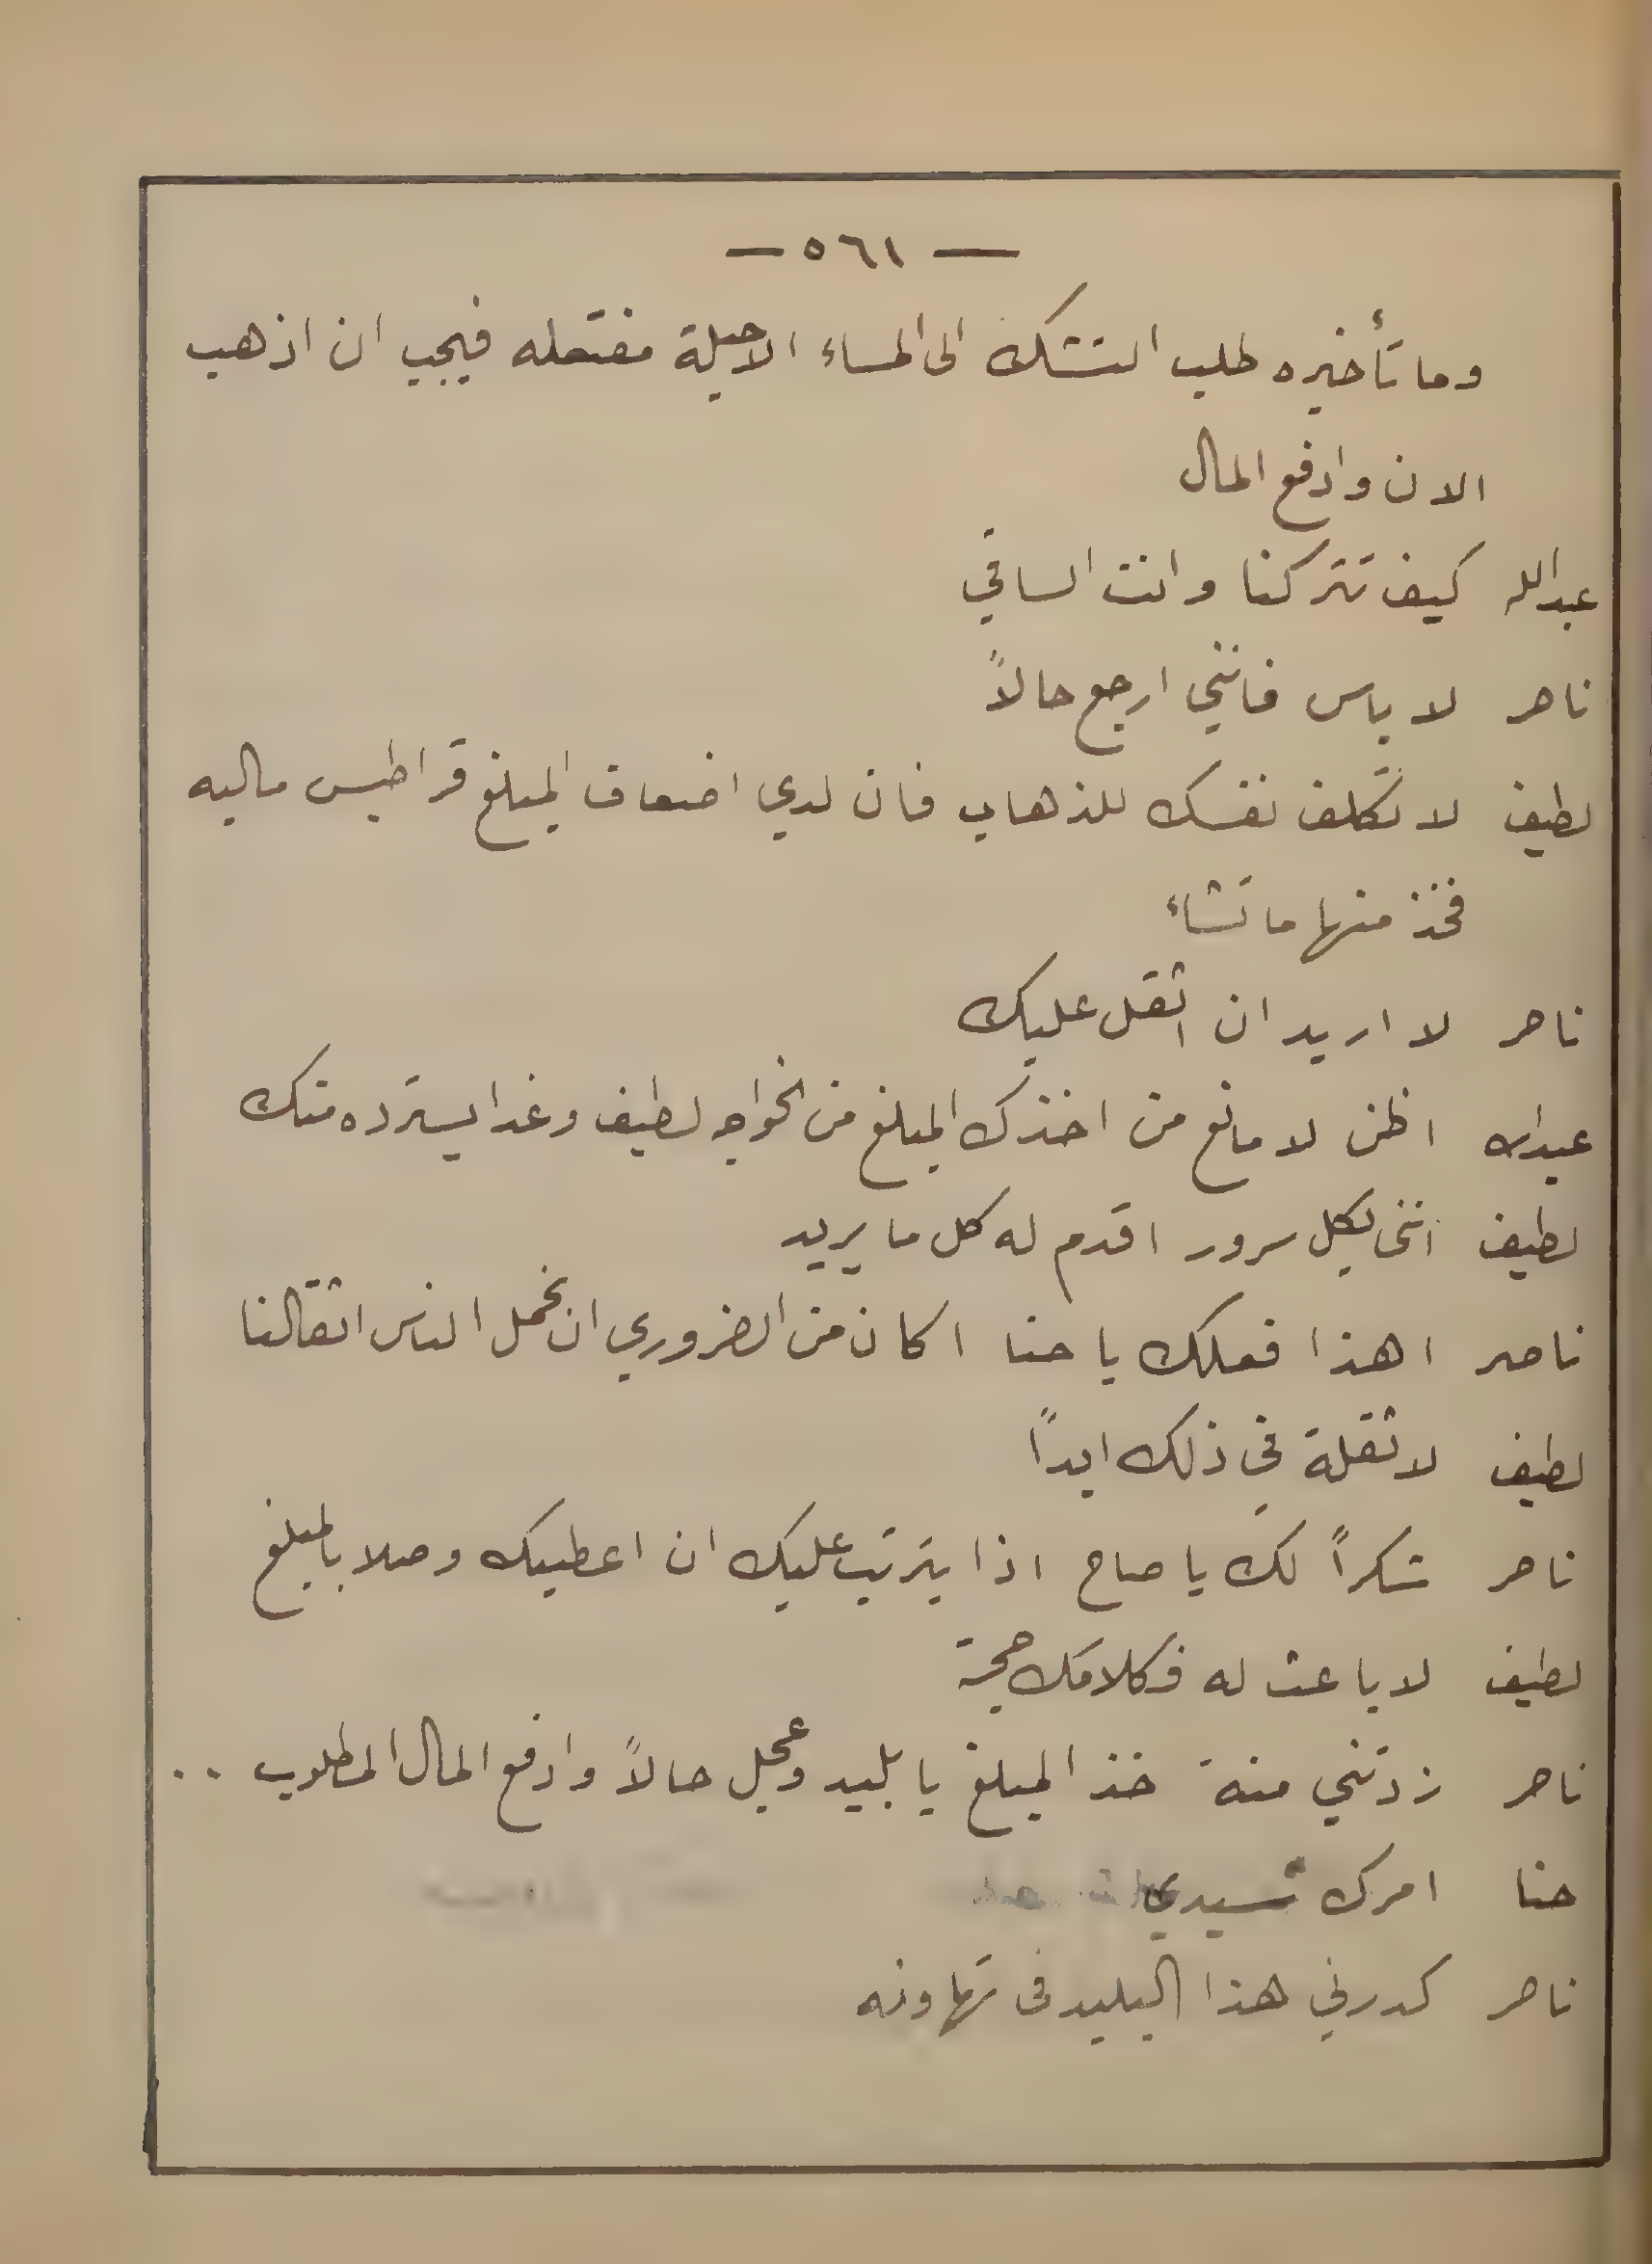 — ٥٦١ —
وما تأخيره طلب التشك الى المساء الا حيلة مفتعله فيجب ان اذهب
الان وادفع المال
عبدالله كيف تتركنا وانت الساقي
ناصر لا باس فانني ارجع حالاً
لطيف لا تكلف نفسك للذهاب فان لدي اضعاف المبلغ قراطيس ماليه
فخذ منها ما تشاء
ناصر لا اريد ان اثقل عليك
عبدالله اظن لا مانع من اخذك المبلغ من الخواجه لطيف وغدا يسترده منك
لطيف انني بكل سرور اقدم له كل ما يريد
ناصر اهذا فعلك يا حنا اكان من الضروري ان نحمل الناس اثقالنا
لطيف لا ثقلة في ذلك ابداً
ناصر شكراً لك يا صاح اذا يترتب عليك ان اعطيك وصلا بالمبلغ
لطيف لا باعث له فكلامك حجة
ناصر زدتني منة خذ المبلغ يا بليد وعجل حالاً وادفع المال المطلوب ..
حنا امرك سيدي
ناصر كدرني هذا البليد في تهاونه